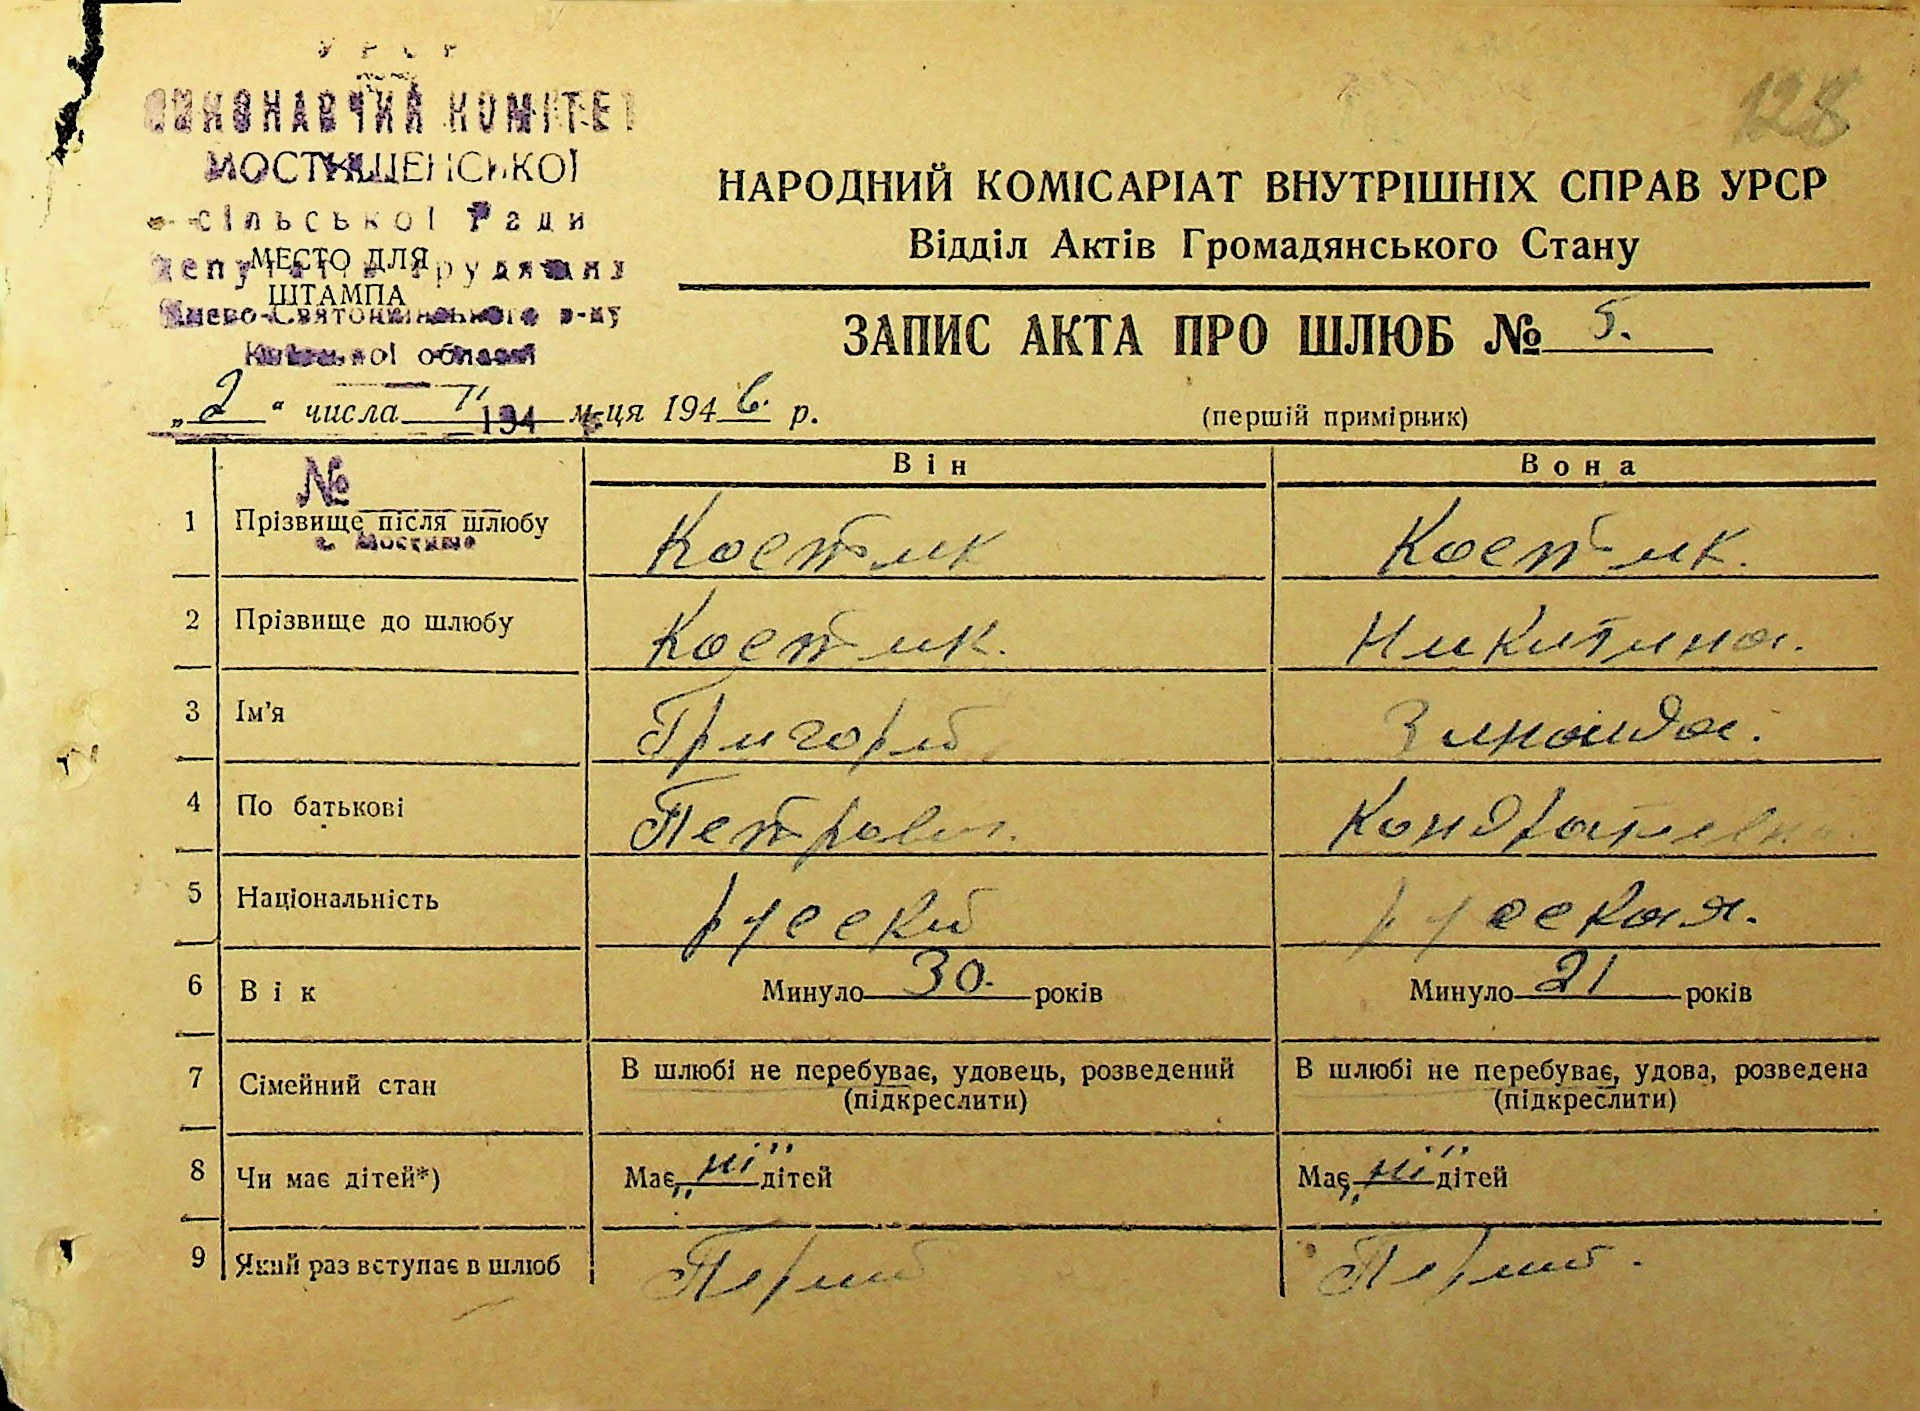 УРСР
128
ВИКОНАВЧИЙ КОМІТЕТ
МОСТИЩЕНСЬКОЇ
сільської Ради
депутатів трудящих
МЕСТО ДЛЯ
ШТАМПА
Києво-Святошинського р-ну
Київської області
194
№
с. Мостище
НАРОДНИЙ КОМІСАРІАТ ВНУТРІШНІХ СПРАВ УРСР
Відділ Актів Громадянського Стану
ЗАПИС АКТА ПРО ШЛЮБ № 5.
„2“ числа м-ця 1946. р.
(першій примірник)
Він Вона
1 Прізвище після шлюбу Костик Костик.
2 Прізвище до шлюбу Костик. Никитина.
3 Ім'я Григорій Зинаида.
4 По батькові Петрович. Кондративна
5 Національність руский руеская.
6 Вік Минуло 30. років Минуло 21 років
7 Сімейний стан В шлюбі не перебуває, удовець, розведений В шлюбі не перебуває, удова, розведена
(підкреслити) (підкреслити)
8 Чи має дітей*) Має „ні“ дітей Має „ні“ дітей
9 Який раз вступає в шлюб Перший Перший.